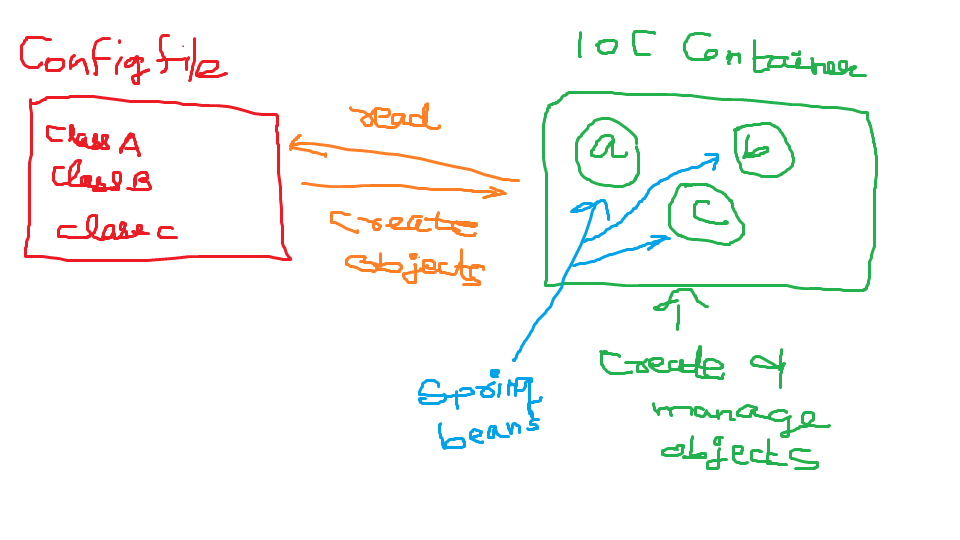 Config file
class A
class B
class c
read
create
objects
IOC Container
a
b
c
Spring
beans
create &
manage
objects